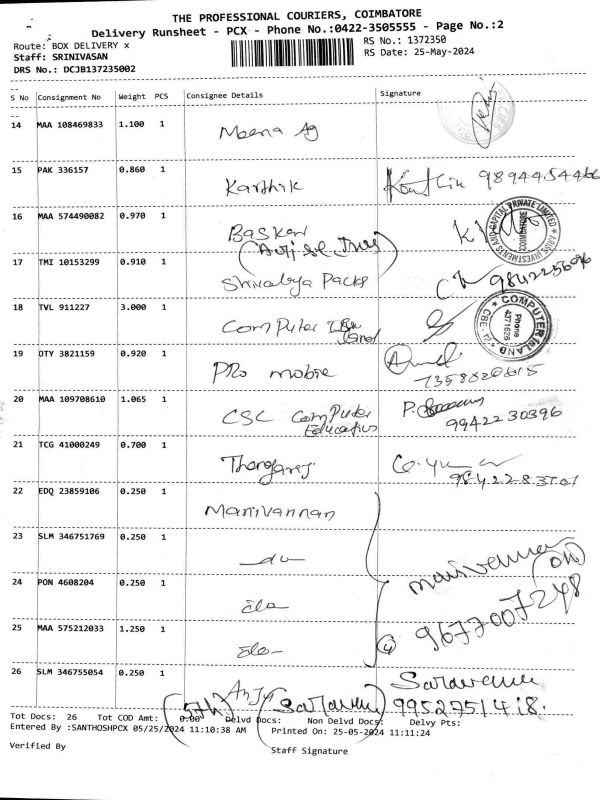 THE PROFESSIONAL COURIERS, COIMBATORE
Delivery Runsheet - PCX - Phone No.:0422-3505555 - Page No.:2
Route: BOX DELIVERY x
RS No.: 1372350
Staff: SRINIVASAN
RS Date: 25-May-2024
DRS No.: DCJB137235002
S No Consignment No Weight PCS Consignee Details Signature
14 MAA 108469833 1.100 1 Meena Ag
15 PAK 336157 0.860 1 Karthik 9894454466
16 MAA 574490082 0.970 1 Baskar
ARISE INVESTMENTS AND CAPITAL PRIVATE LIMITED
17 TMI 10153299 0.910 1 Shivalya Packs
18 TVL 911227 3.000 1 Computer Island
COMPUTER ISLAND
Phone
4371626
CBE-12
19 OTY 3821159 0.920 1 Pro mobile
20 MAA 109708610 1.065 1 CSC Computer Education
9942230396
21 TCG 41000249 0.700 1 Thangaraj
22 EDQ 23859106 0.250 1 Manivannan
23 SLM 346751769 0.250 1 do
24 PON 4608204 0.250 1
25 MAA 575212033 1.250 1
9677007248
26 SLM 346755054 0.250 1
9952751418.
Tot Docs: 26 Tot COD Amt: 0.00 Delvd Docs: Non Delvd Docs: Delvy Pts:
Entered By :SANTHOSHPCX 05/25/2024 11:10:38 AM Printed On: 25-05-2024 11:11:24
Verified By
Staff Signature